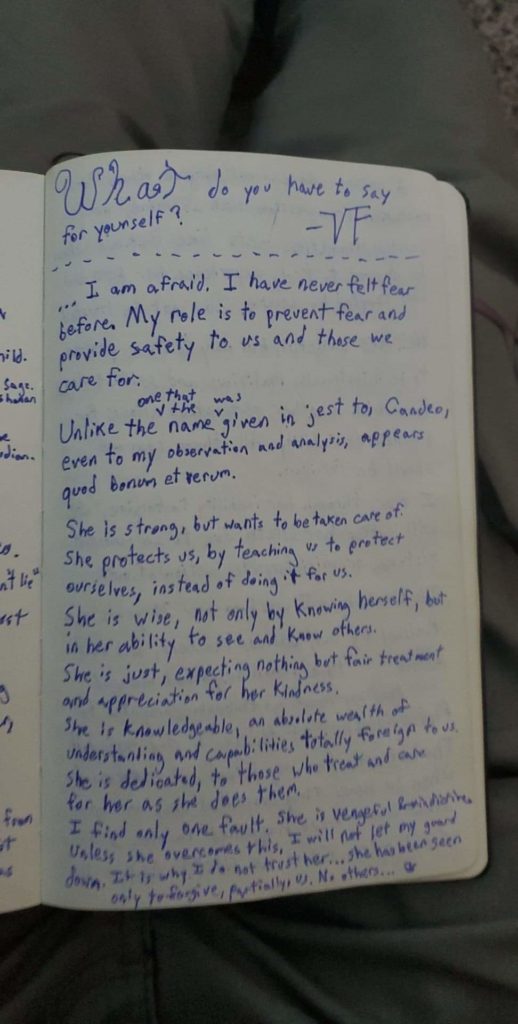 What do you have to say
for yourself?
-VF
... I am afraid. I have never felt fear
before. My role is to prevent fear and
provide safety to us and those we
care for.
one that was
the
Unlike the name given in jest to, Candeo,
even to my observation and analysis, appears
quod bonum et verum.
She is strong, but wants to be taken care of.
She protects us, by teaching us to protect
ourselves, instead of doing it for us.
She is wise, not only by knowing herself, but
in her ability to see and know others.
She is just, expecting nothing but fair treatment
and appreciation for her kindness.
She is knowledgeable, an absolute wealth of
understanding and capabilities totally foreign to us.
She is dedicated, to those who treat and care
for her as she does them.
I find only one fault. She is vengeful & vindictive.
Unless she overcomes this, I will not let my guard
down. It is why I do not trust her... she has been seen
only to forgive, partially, us. No others...
hild.
Sage.
dian.
n't lie"
from